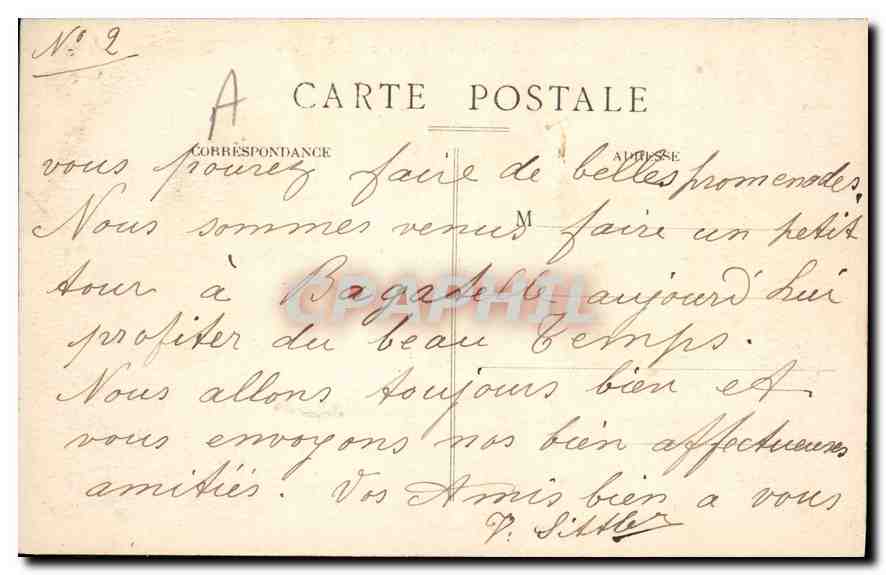 Nº 2
A
CARTE POSTALE
CORRESPONDANCE
ADRESSE
vous pourez faire de belles promenades.
M
Nous sommes venus faire un petit
tour à Bagatelle aujourd'hui
CPAPHIL
profiter du beau Temps.
Nous allons toujours bien et
vous envoyons nos bien affectueuses
amitiés. Vos Amis bien a vous